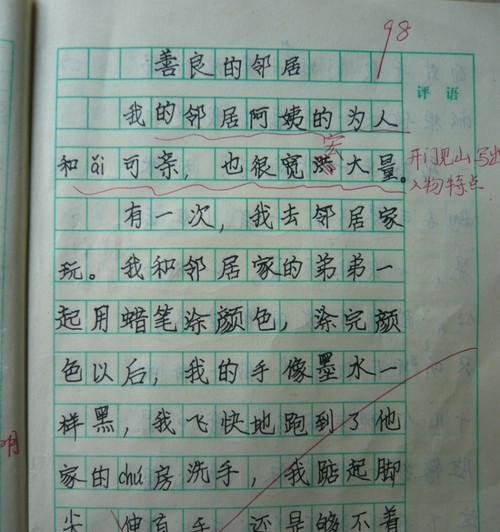 98
善良的邻居
评语
我的邻居阿姨的为人
和ǎi可亲，也很宽洪大量。
宏
开门见山写出
人物特点
有一次，我去邻居家
玩。我和邻居家的弟弟一
起用蜡笔涂颜色，涂完颜
色以后，我的手像墨水一
样黑，我飞快地跑到了他
家的chú房洗手，我踮起脚
尖，伸直手，还是够不着